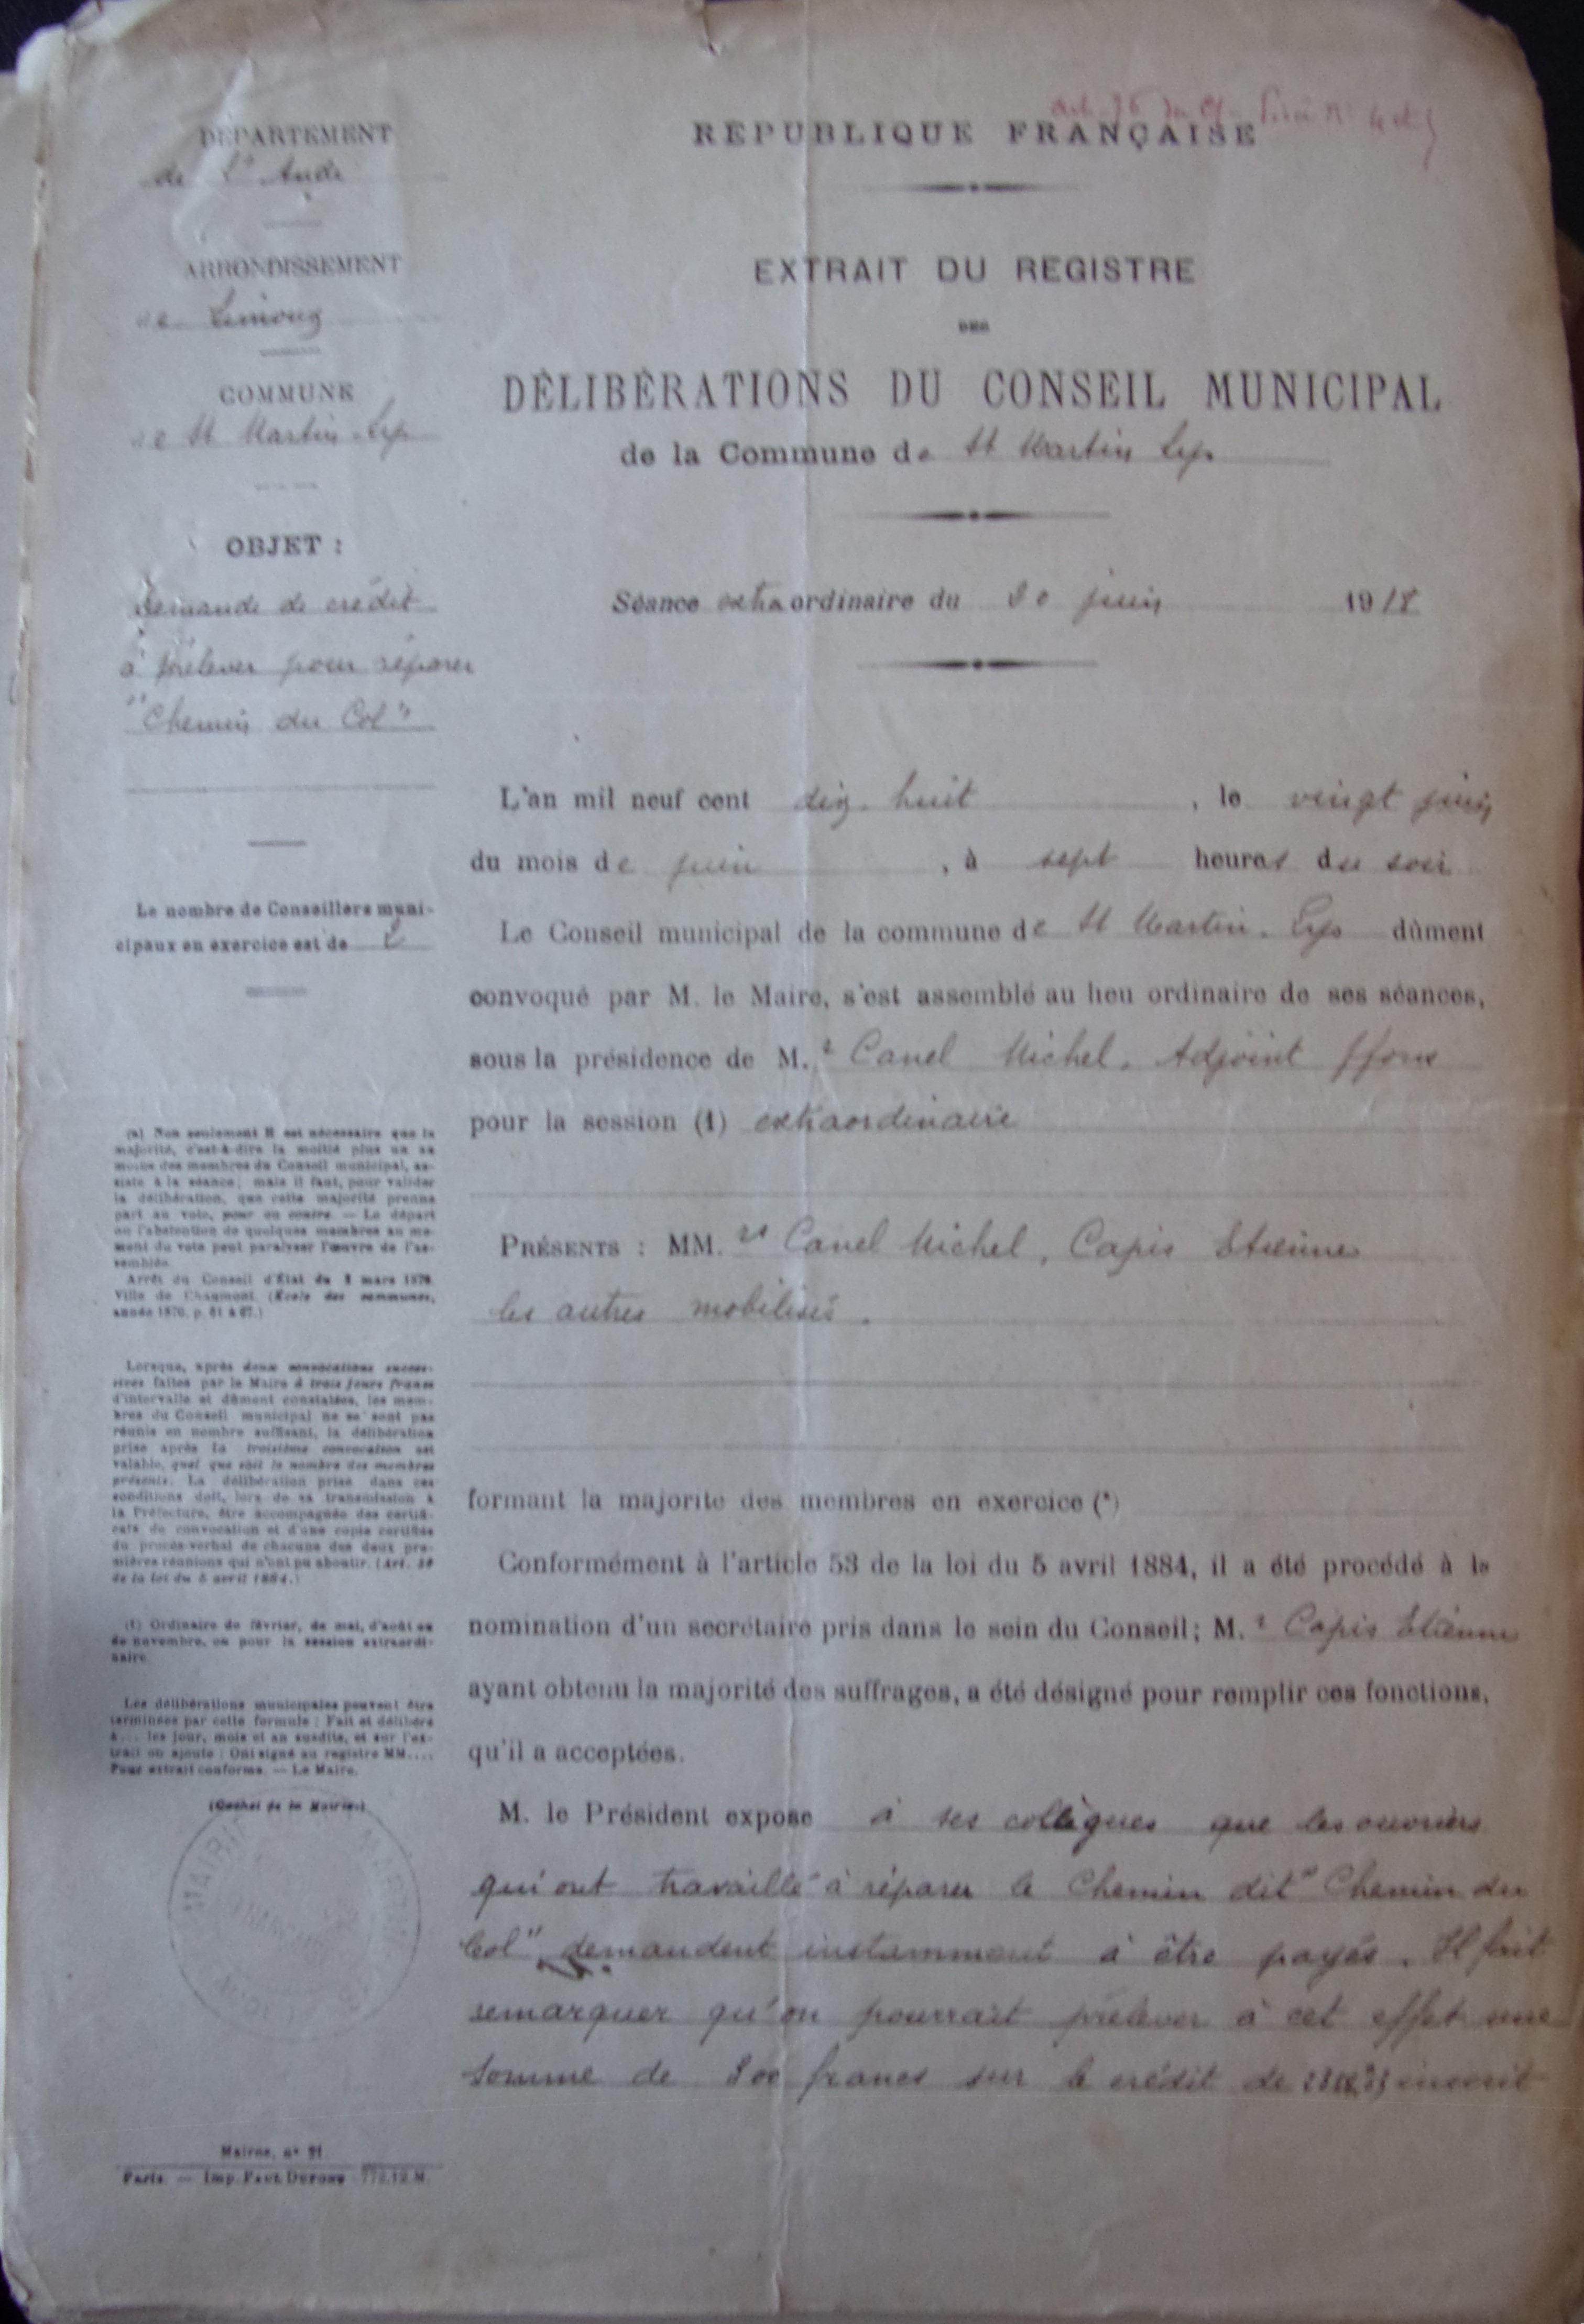 DÉPARTEMENT
de l'Aude
ARRONDISSEMENT
de Limoux
COMMUNE
de St Martin-Lys
OBJET :
Demande de crédit
à prélever pour réparer
"Chemin du Col"
Le nombre de Conseillers muni-
cipaux en exercice est de
(a) Non seulement il est nécessaire que la
majorité, c'est-à-dire la moitié plus un au
moins des membres du Conseil municipal, as-
siste à la séance; mais il faut, pour valider
la délibération, que cette majorité prenne
part au vote, pour ou contre. — Le départ
ou l'abstention de quelques membres au mo-
ment du vote peut paralyser l'œuvre de l'as-
semblée.
Arrêt du Conseil d'État du mars
Ville de Chaumont. (École des communes,
année p.
Lorsque, après deux convocations succes-
sives faites par le Maire à trois jours francs
d'intervalle et dûment constatées, les mem-
bres du Conseil municipal ne se sont pas
réunis en nombre suffisant, la délibération
prise après la troisième convocation est
valable, quel que soit le nombre des membres
présents. La délibération prise dans ces
conditions doit, lors de sa transmission à
la Préfecture, être accompagnée des certifi-
cats de convocation et d'une copie certifiée
du procès-verbal de chacune des deux pre-
mières réunions qui n'ont pu aboutir. (Art. 50
de la loi du 5 avril 1884.)
(1) Ordinaire de février, de mai, d'août ou
de novembre, ou pour la session extraordi-
naire.
Les délibérations municipales peuvent être
terminées par cette formule : Fait et délibéré
à ... les jour, mois et an susdits, et sur l'ex-
trait on ajoute : Ont signé au registre MM....
Pour extrait conforme. — Le Maire.
(Cachet de la Mairie.)
MAIRIE
Mairies, n° 21
Paris. — Imp. Paul Dupont
RÉPUBLIQUE FRANÇAISE
EXTRAIT DU REGISTRE
DES
DÉLIBÉRATIONS DU CONSEIL MUNICIPAL
de la Commune de St Martin Lys
Séance extraordinaire du 20 juin 1918
L'an mil neuf cent dix-huit , le vingt juin
du mois de juin , à sept heures du soir
Le Conseil municipal de la commune de St Martin-Lys dûment
convoqué par M. le Maire, s'est assemblé au lieu ordinaire de ses séances,
sous la présidence de M.r Canel Michel, Adjoint ffons
pour la session (1) extraordinaire
PRÉSENTS : MM.rs Canel Michel, Capis Etienne
les autres mobilisés.
formant la majorité des membres en exercice (*)
Conformément à l'article 53 de la loi du 5 avril 1884, il a été procédé à la
nomination d'un secrétaire pris dans le sein du Conseil; M.r Capis Etienne
ayant obtenu la majorité des suffrages, a été désigné pour remplir ces fonctions,
qu'il a acceptées.
M. le Président expose à ses collègues que les ouvriers
qui ont travaillé à réparer le Chemin dit "Chemin du
Col", demandent instamment à être payés. Il fait
remarquer qu'on pourrait prélever à cet effet une
somme de 800 francs sur le crédit de inscrit